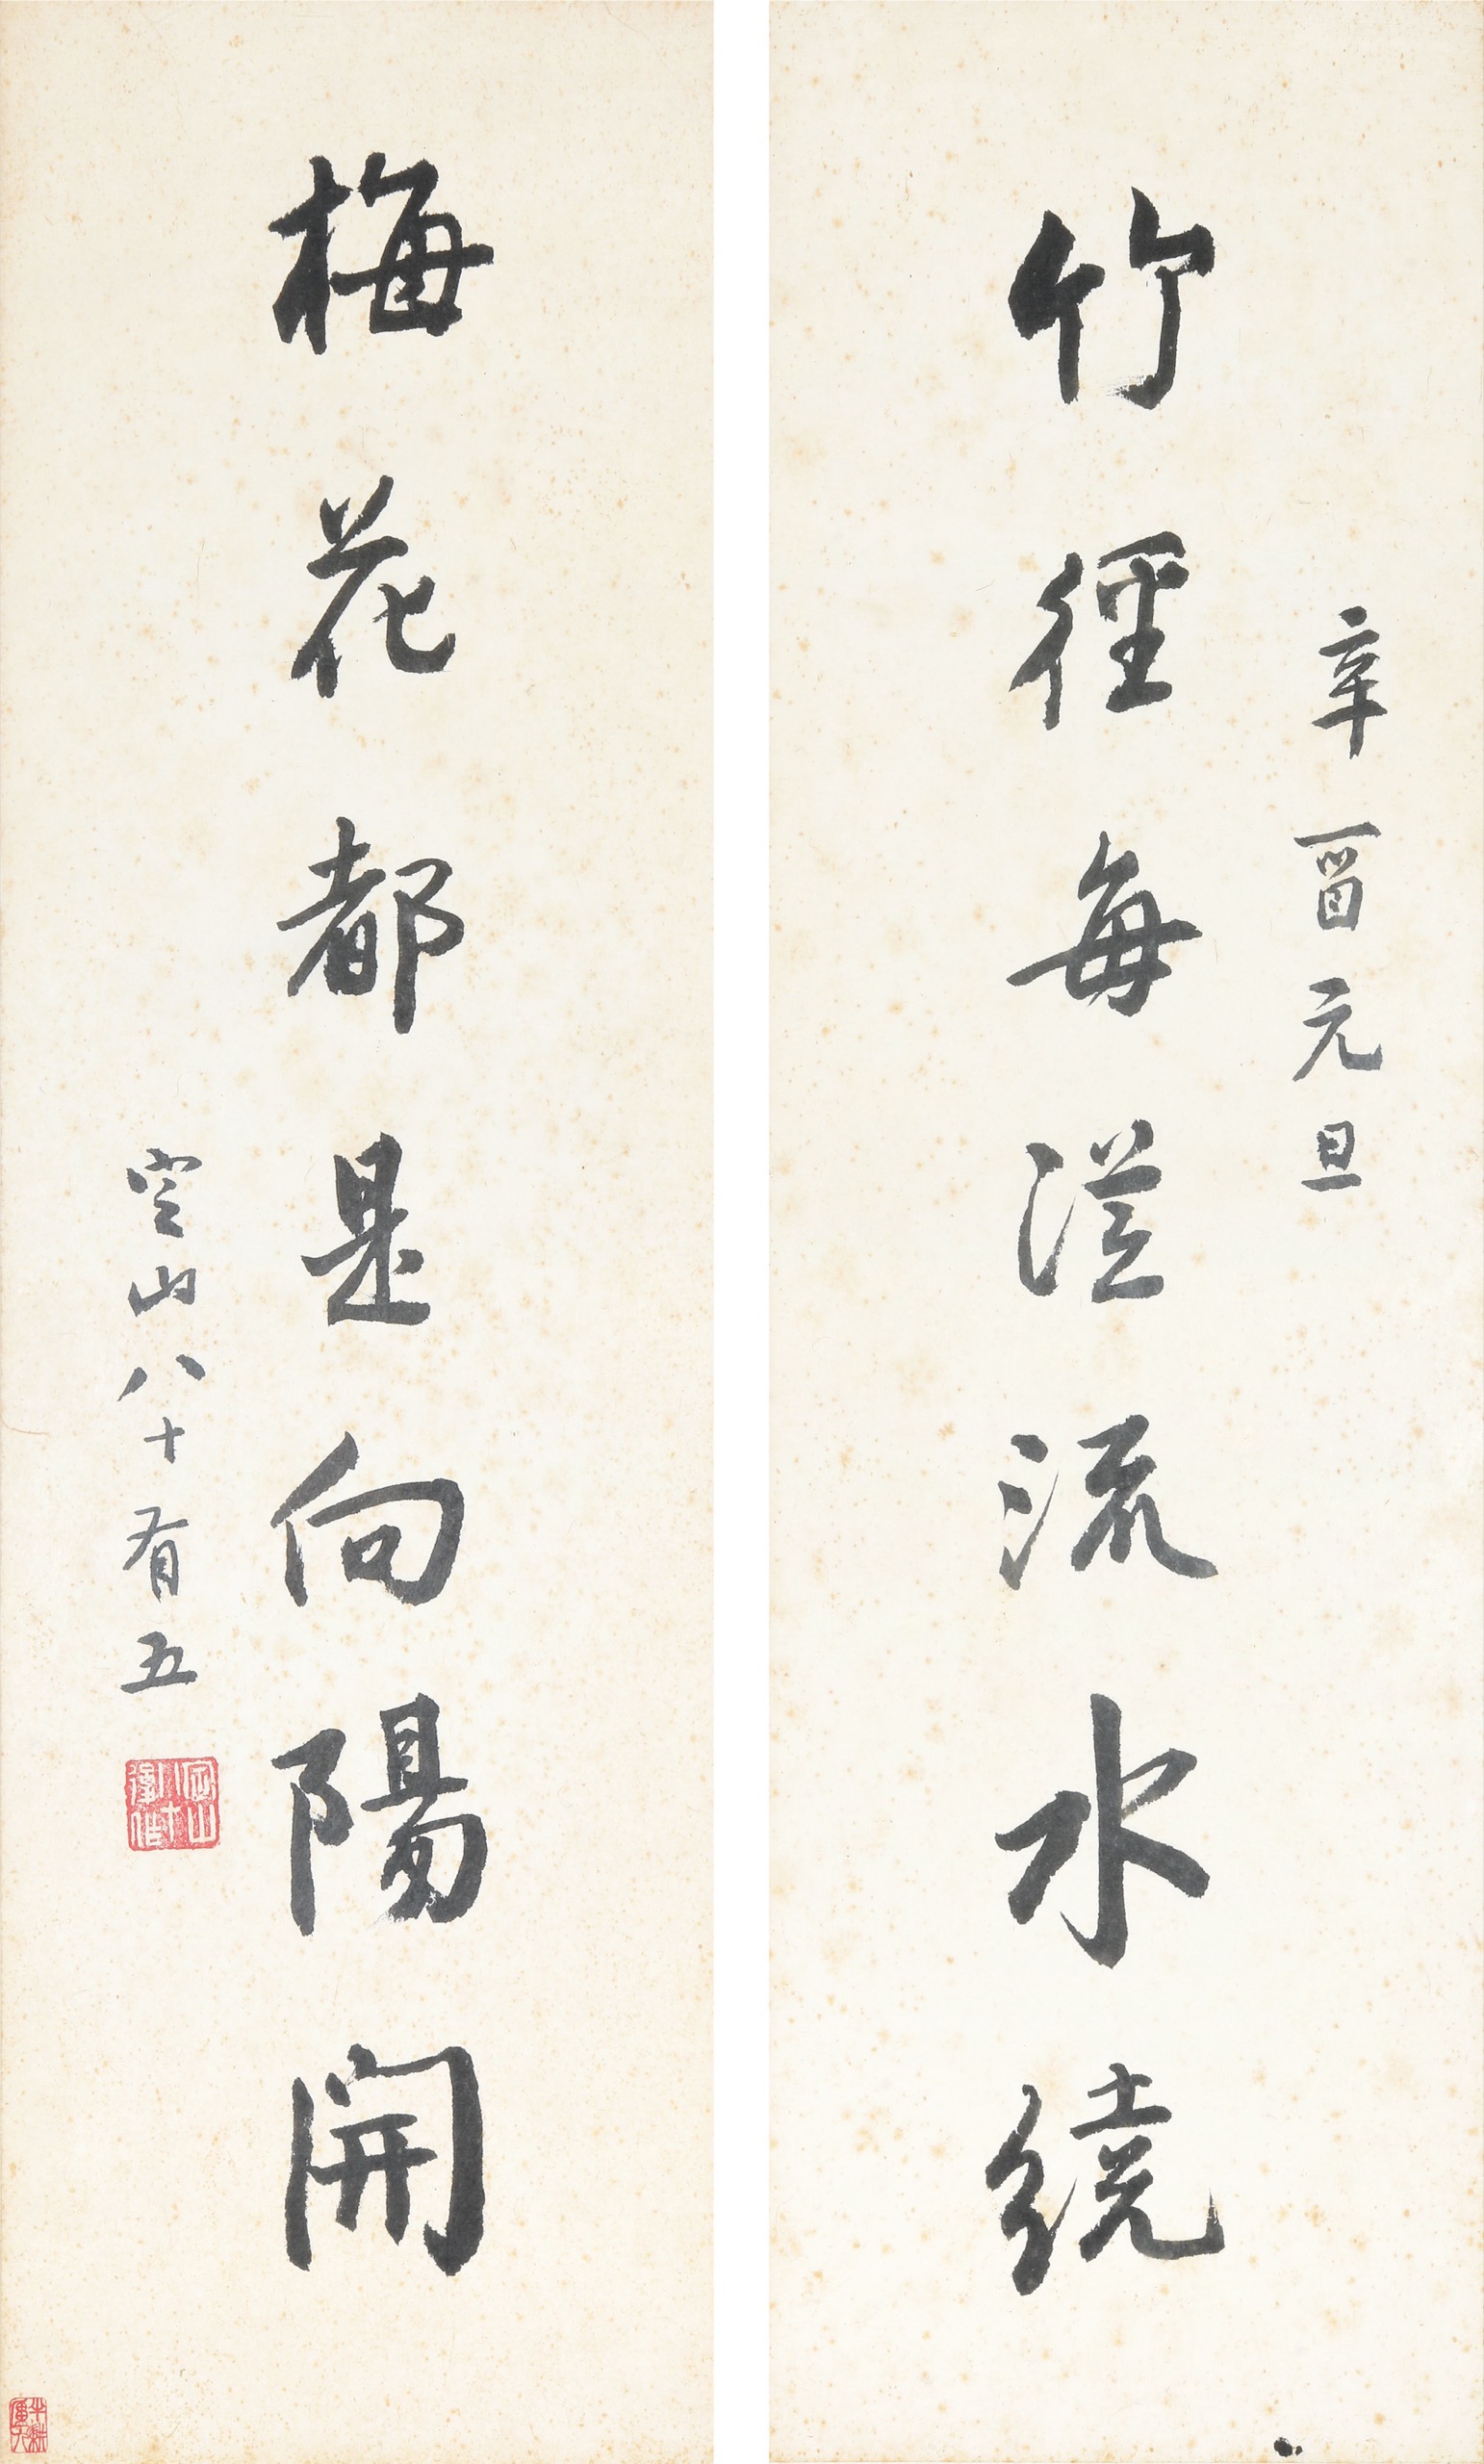 辛酉元旦
竹徑每從流水繞
梅花都是向陽開
空山八十有五